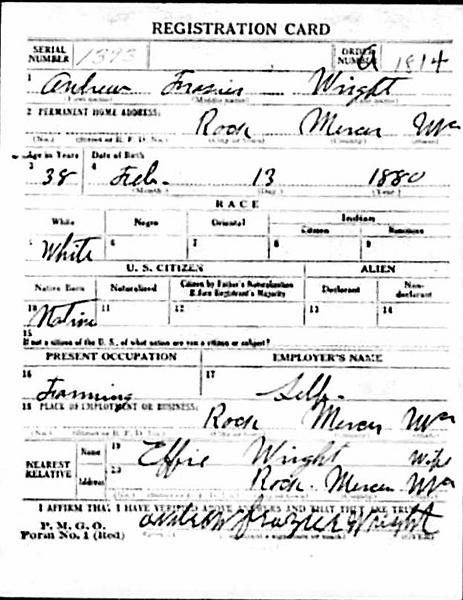 REGISTRATION CARD
SERIAL NUMBER 1393 ORDER NUMBER A 1814
1 Andrew Frasier Wright
(First name) (Middle name) (Last name)
2 PERMANENT HOME ADDRESS:
Rock Mercer Wva
(No.) (Street or R. F. D. No.) (City or town) (County) (State)
Age in Years Date of Birth
3 38 4 Feb. 13 1880
(Month) (Day) (Year)
RACE
White Negro Oriental Indian
Citizen Noncitizen
5 White 6 7 8 9
U. S. CITIZEN ALIEN
Native Born Naturalized Citizen by Father's Naturalization Before Registrant's Majority Declarant Non-declarant
10 Native 11 12 13 14
15
If not a citizen of the U. S., of what nation are you a citizen or subject?
PRESENT OCCUPATION EMPLOYER'S NAME
16 Farming 17 Self
18 PLACE OF EMPLOYMENT OR BUSINESS:
Rock Mercer Wva
(No.)
NEAREST RELATIVE Name 19 Effie Wright Wife
Address 20 Rock Mercer Wva
I AFFIRM THAT I HAVE VERIFIED ABOVE ANSWERS AND THAT THEY ARE TRUE
P. M. G. O.
Form No. 1 (Red) Andrew Frazier Wright